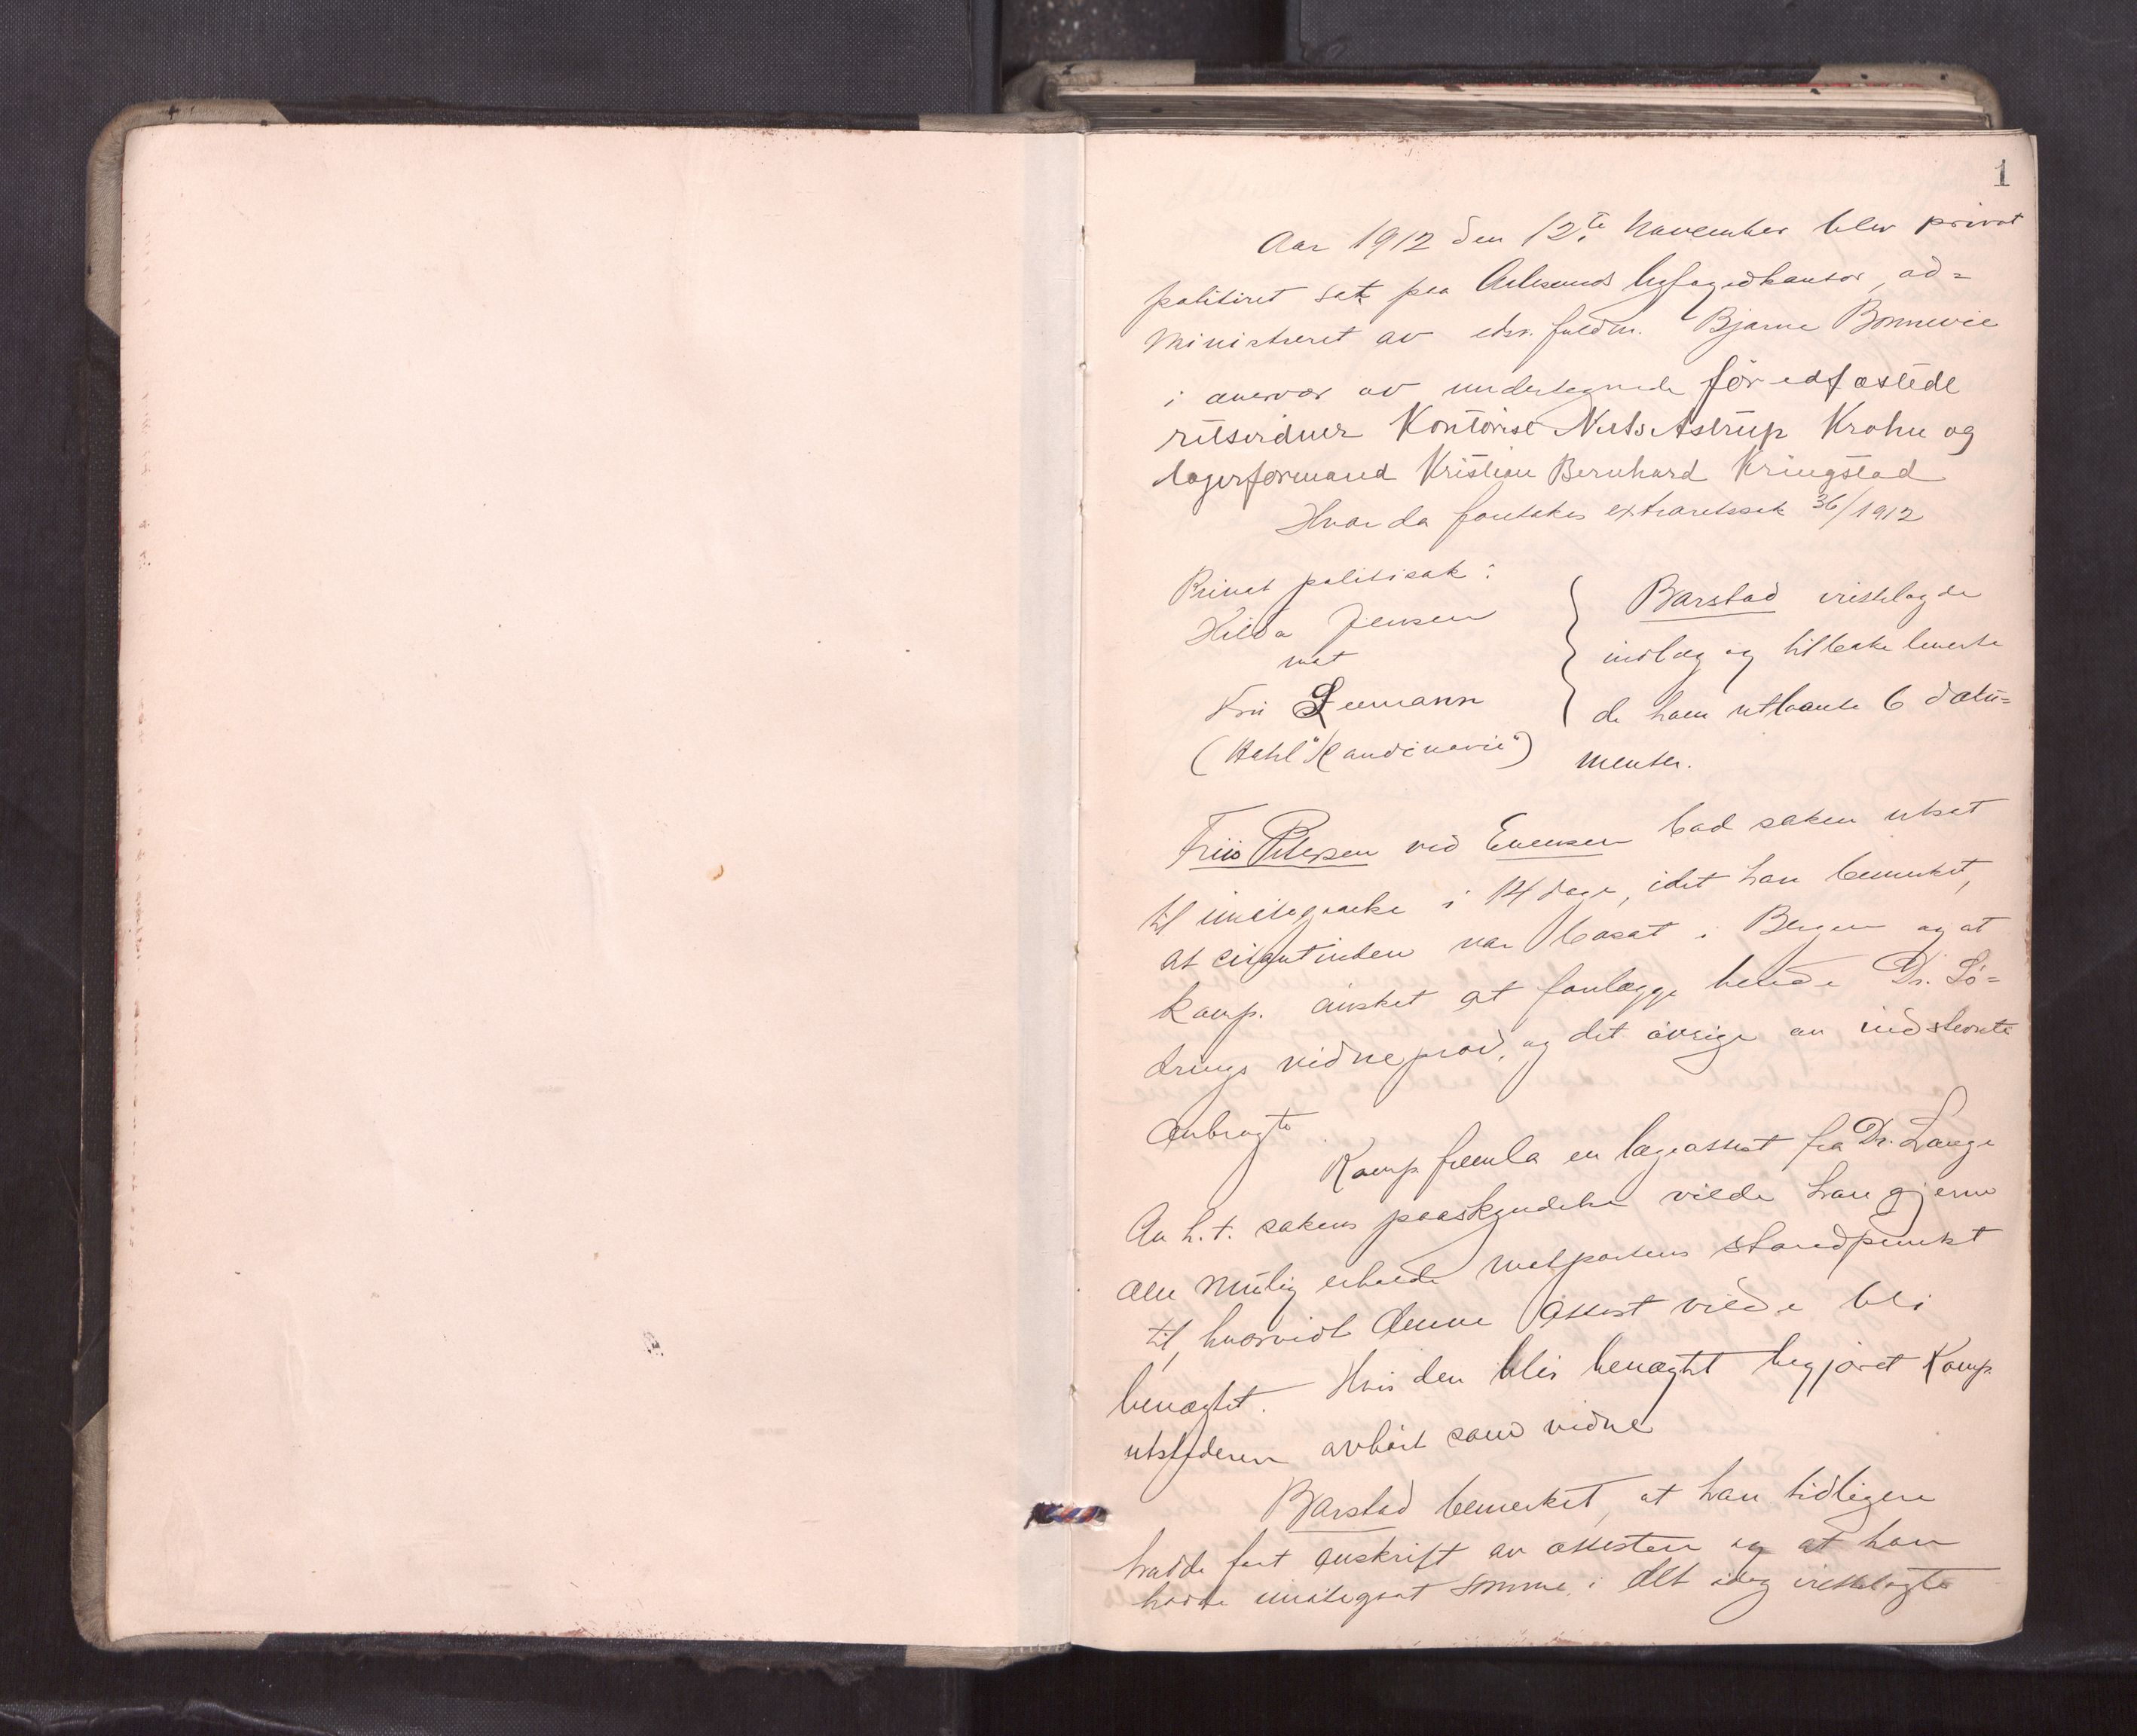 1
Aar 1912 den 12te November blev privat
politiret sat paa Aalesunds byfogedkontor, ad=
ministreret av edsv. fuldm. Bjarne Bonnevie
i overvær av undertegnede før edfæstede
retsvidner Kontorist Niels Astrup Krohn og
lagerformand Kristian Bernhard Kringstad
Hvor da foretokes extraretssak 36/1912
Privat politisak:
Hilda Jensen
mot
Fru Seemann
(Hotel "Skandinavie")
Barstad irettelagde
indlæg og tilbakeleverte
de ham utlaante 6 doku=
menter.
Friis Petersen ved Evensen bad saken utsat
til imøtegaaelse i 14 dage, idet han bemerket,
at citantinden var bosat i Bergen og at
komp. ønsket at forelægge hende Dr. Lø=
drups vidneprov, og det øvrige av indstevnte
anbragte
Komp fremla en lægeattest fra Dr. Lange
An h. t. sakens paaskyndelse vilde han gjerne
om mulig erholde motpartens standpunkt
til, hvorvidt denne attest vilde bli
benægtet. Hvis den blir benægtet begjæret Komp.
utstederen avhørt som vidne
Barstad bemerket, at han tidligere
hadde faat avskrift av attesten og at han
hadde imøtegaat samme i det idag irettelagte